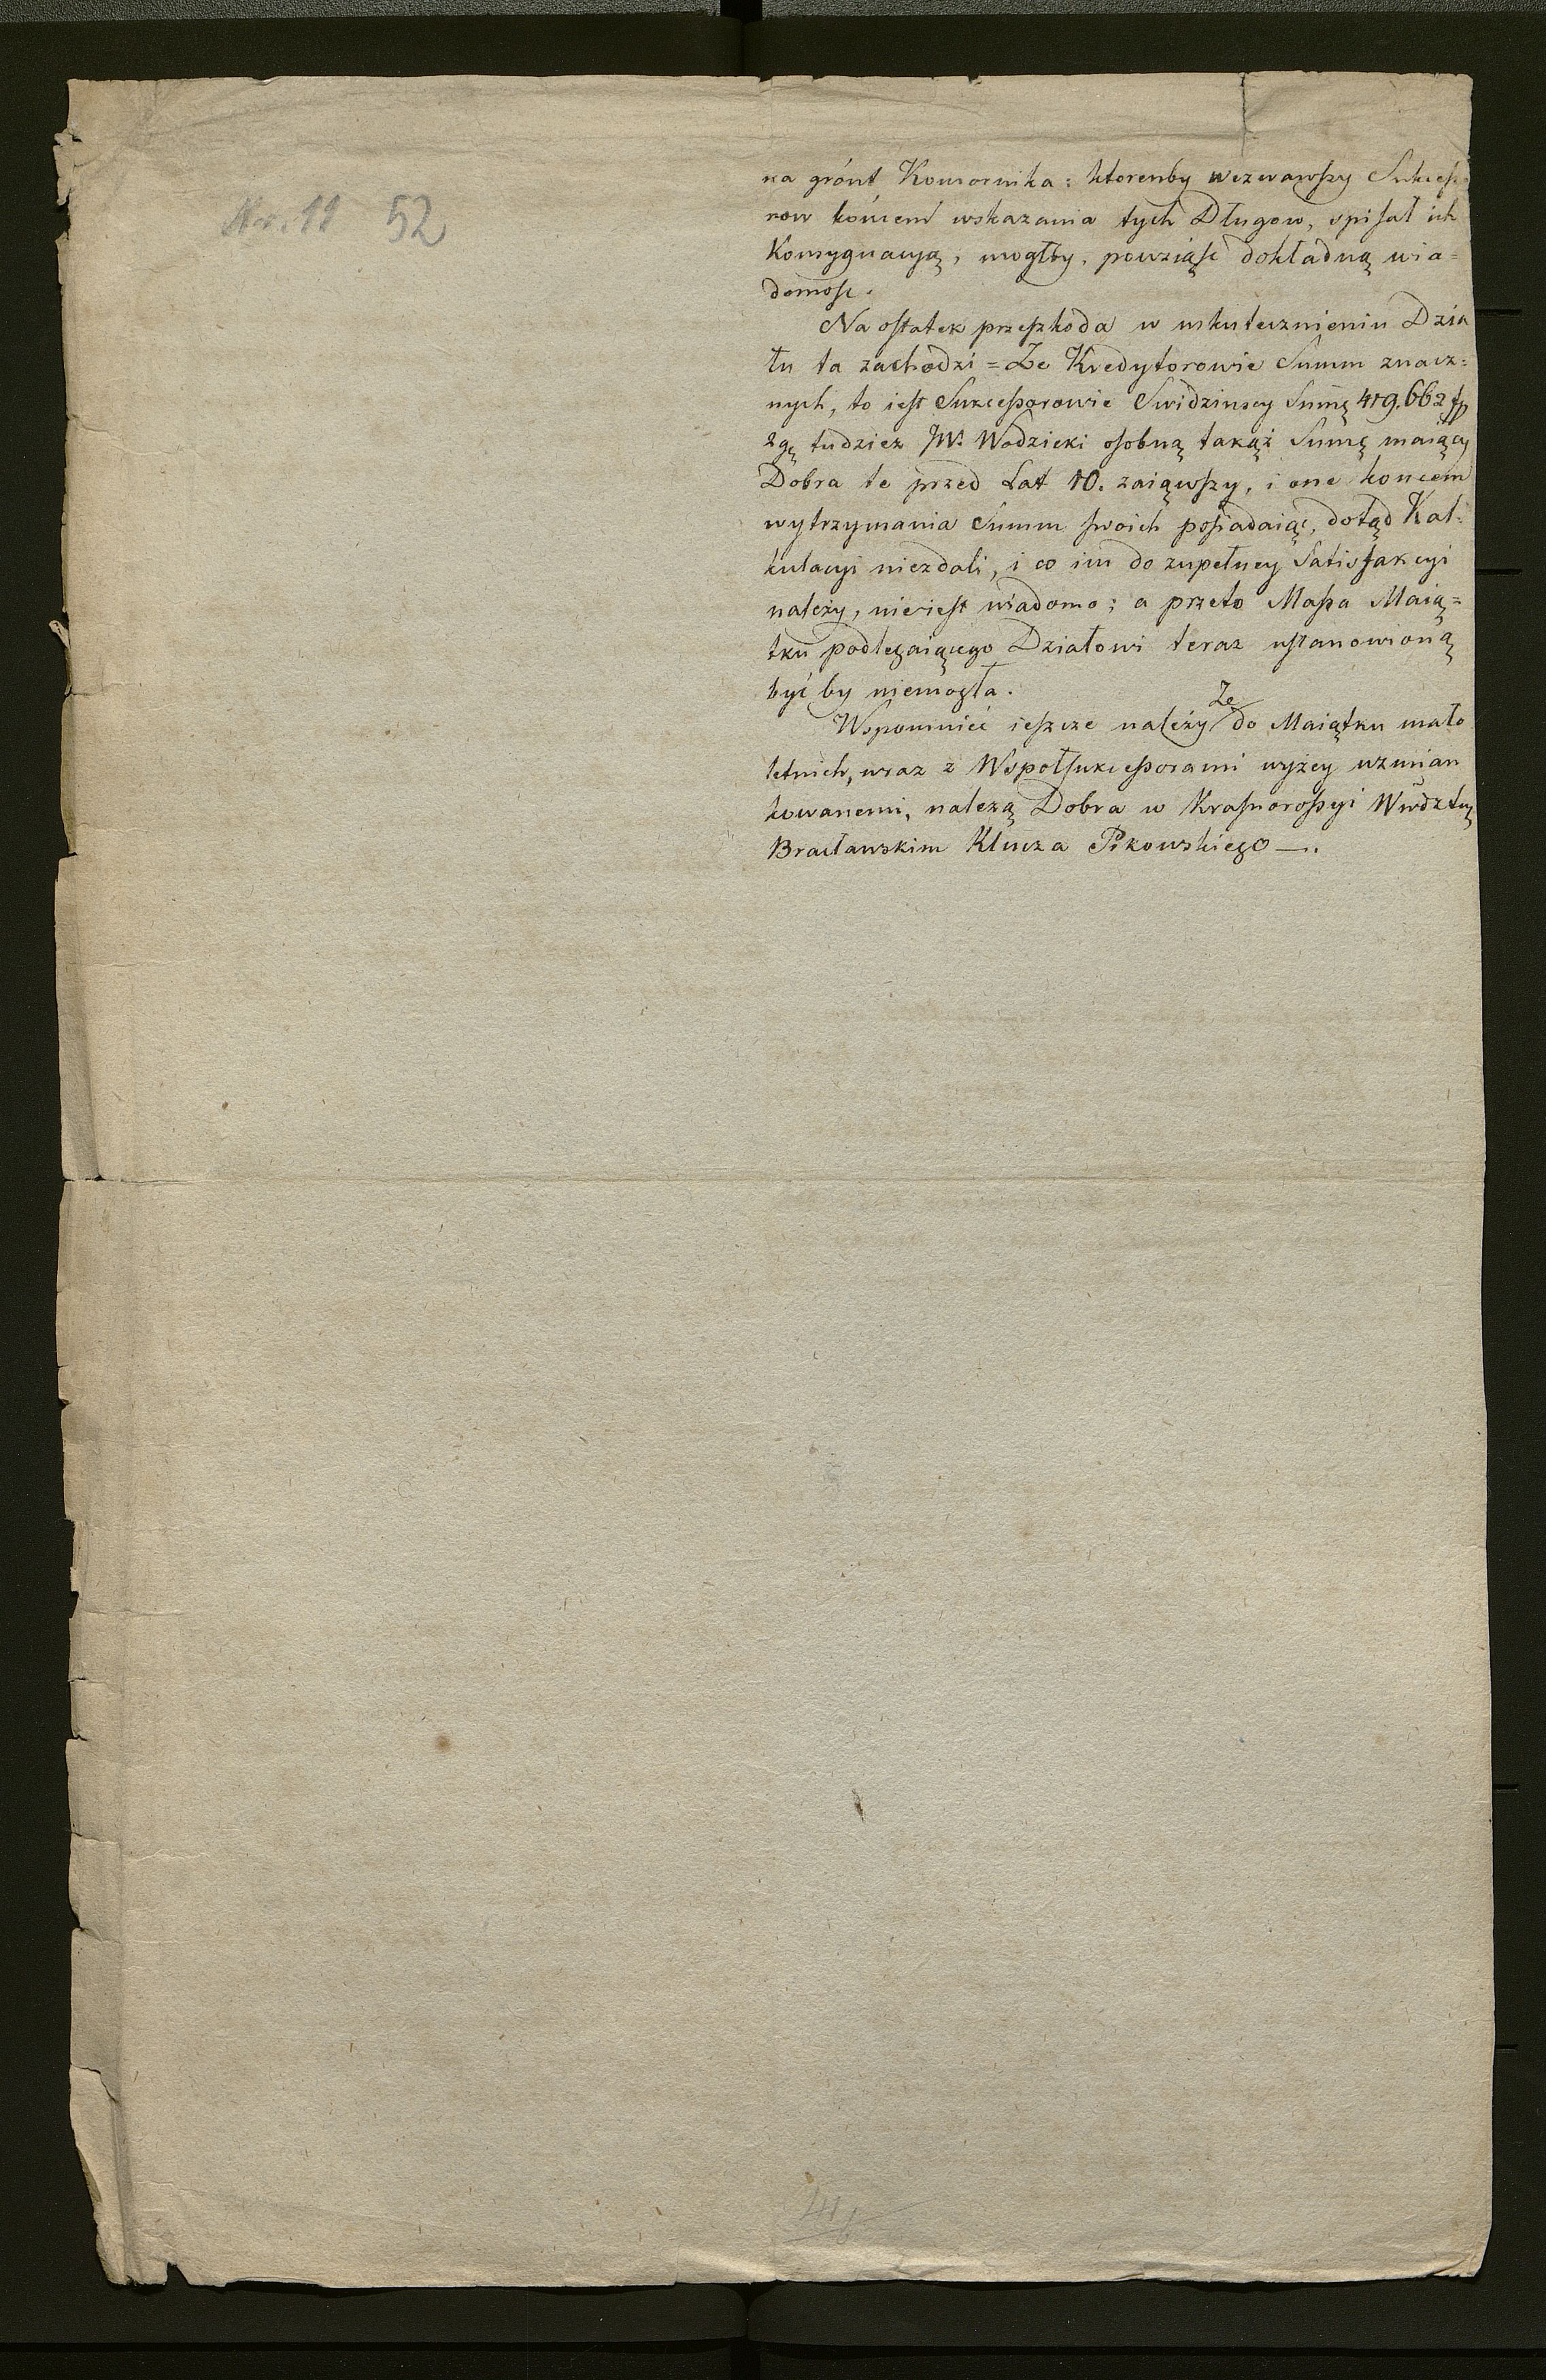 Nr. 11 52
na grónt Komornika: ktorenby wezwawszy Sukcesso
row końcem wskazania tych Długow, spisał ich
Konsygnacyą, mogłby, powziąsc dokładną wia=
domosc.
Na ostatek przeszkoda w uskutecznieniu Dzia
łu ta zachodzi = Ze Kredytorowie Summ znacz=
nych, to iest Sukcessorowie Swidzinscy Summę 419.662 fp
2 gr tudziez JW. Wodzicki osobną takąż Summę maiący
Dobra te przed Lat 10. zaiąwszy, i one koncem
wytrzymania Summ swoich posiadaiąc, dotąd Kal=
kulacyi niezdali, i co im do zupełney Satisfakcyi
należy, nieiest wiadomo; a przeto Massa Maią=
tku podlegaiącego Działowi teraz ustanowioną
być by niemogła.
Wspomnieć ieszcze należy Ze do Maiątku mało
letnich, wraz z Wspołsukcessorami wyżey wzmian
kowanemi, należą Dobra w Krasnorossyi Wwdztwie
Bracławskim Klucza Pikowskiego —.